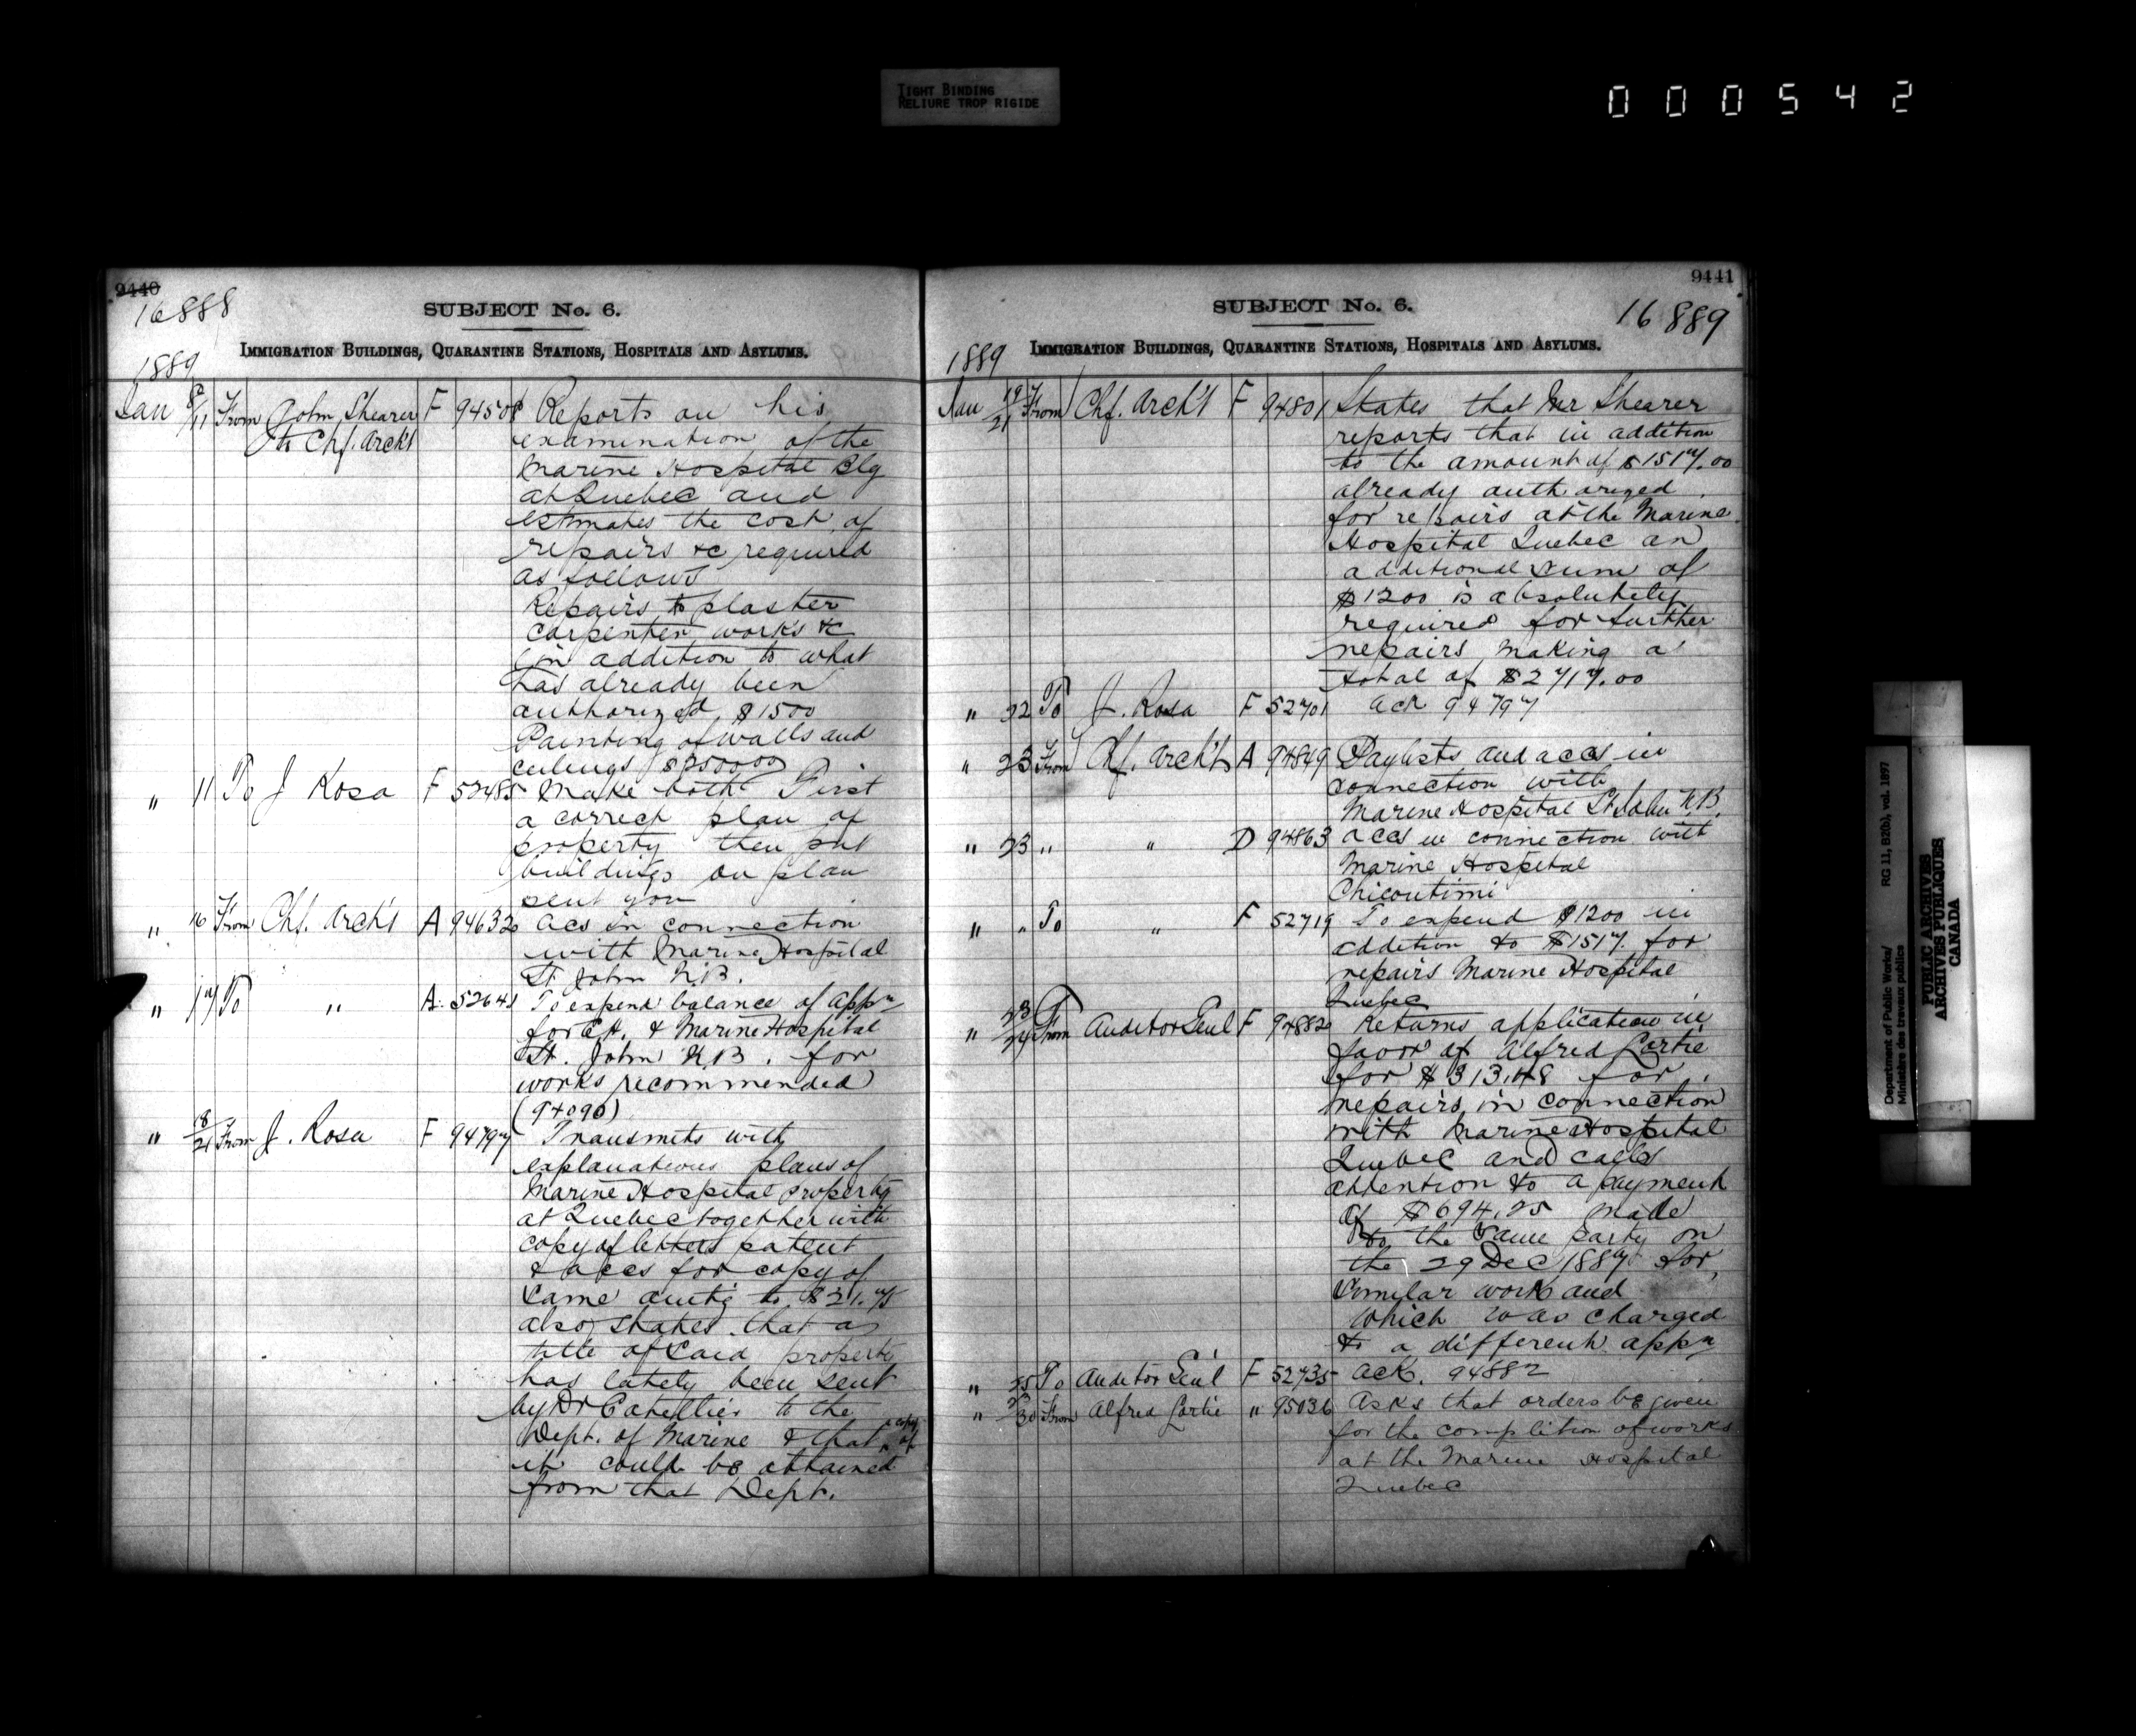 TIGHT BINDING
RELIURE TROP RIGIDE
000542
9440
16888
SUBJECT No. 6.
IMMIGRATION BUILDINGS, QUARANTINE STATIONS, HOSPITALS AND ASYLUMS.
1889
Jan 8/11 From John Shearer F 94508 Reports on his
to Chf. Arch't examination of the
Marine Hospital Blg
at Quebec and
estimates the cost of
repairs &c required
as follows
Repairs to plaster
carpenter works &c
(in addition to what
has already been
authorized $1500
Painting of walls and
ceilings $2500.00
" 11 To J Rosa F 52485 Make both First
a correct plan of
property then put
buildings on plan
sent you
" 16 From Chf. Arch't A 94632 Acs in connection
with Marine Hospital
St John N.B.
" 17 To " A. 52641 To expend balance of appn
for C.H. & Marine Hospital
St. John N.B. for
works recommended
(94090)
" 18/21 From J. Rosa F 94797 Transmits with
explanations plans of
Marine Hospital property
at Quebec together with
copy of letters patent
& accs for copy of
same amtg to $21.75
also states that a
title of said property
has lately been sent
by Dr Catellier to the
Dept. of Marine & that a copy of
it could be obtained
from that Dept.
9441
SUBJECT No. 6.
16889
IMMIGRATION BUILDINGS, QUARANTINE STATIONS, HOSPITALS AND ASYLUMS.
1889
Jan 19/21 From Chf. Arch't F 94801 States that Mr Shearer
reports that in addition
to the amount of $1517.00
already authorized
for repairs at the Marine
Hospital Quebec an
additional sum of
$1200 is absolutely
required for further
repairs making a
total of $2717.00
" 22 To J. Rosa F 52701 Ack 94797
" 23 From Chf. Arch't A 94849 Paylists and accs in
connection with
Marine Hospital St John N.B.
" 23 " " D 94863 accs in connection with
Marine Hospital
Chicoutimi
" " To " F 52719 To expend $1200 in
addition to $1517. for
repairs Marine Hospital
Quebec
" 23/24 From Auditor Genl F 94882 Returns application in
favor of Alfred Lortie
for $313.48 for
repairs in connection
with Marine Hospital
Quebec and calls
attention to a payment
of $694.25 made
to the same party on
the 29 Dec 1887 for
similar work and
which was charged
to a different appn
" 25 To Auditor Gen'l F 52735 Ack. 94882
" 23/30 From Alfred Lortie " 95036 Asks that orders be given
for the complition of works
at the Marine Hospital
Quebec
Department of Public Works/
Ministère des travaux publics
RG 11, B2(b), vol. 1897
PUBLIC ARCHIVES
ARCHIVES PUBLIQUES
CANADA